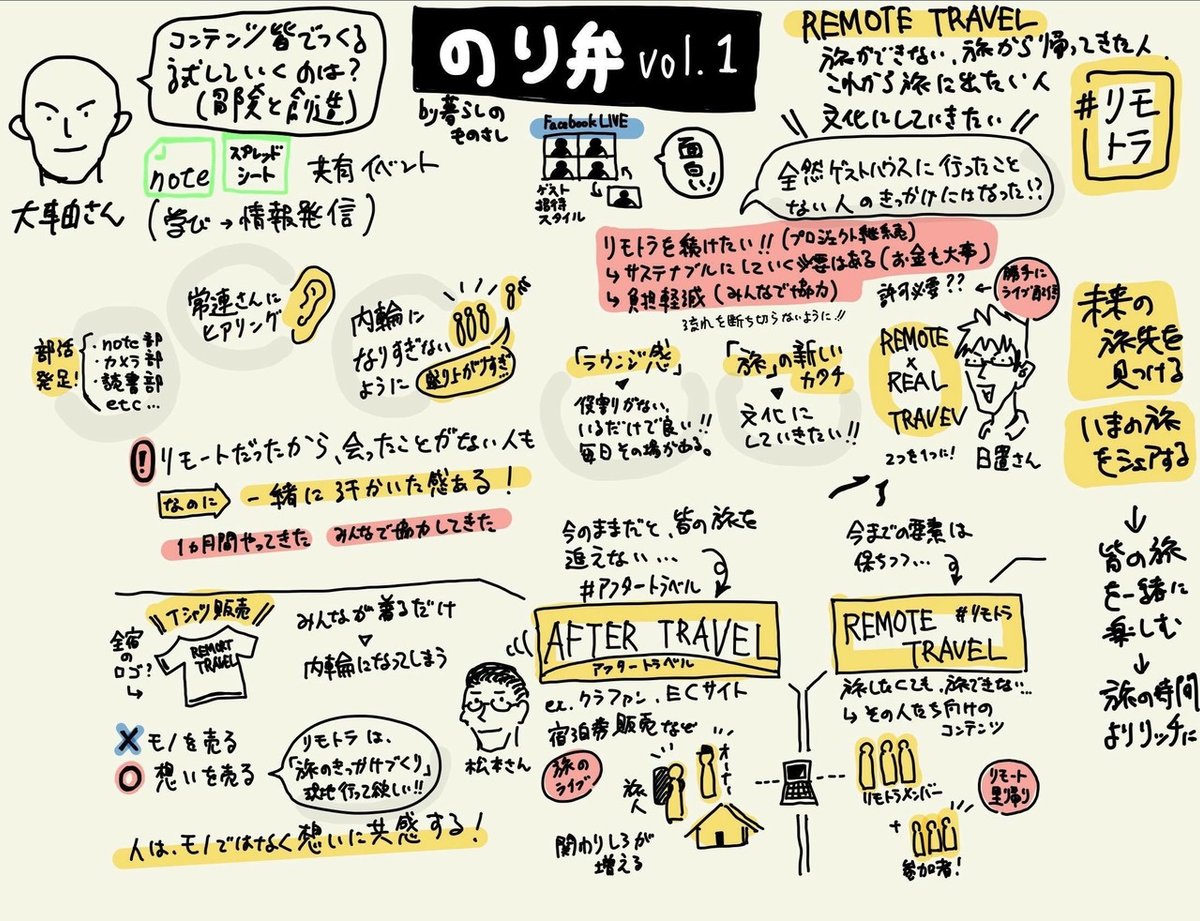 コンテンツ皆でつくる
試していくのは?
(冒険と創造)
大曲さん
note
スプレッド
シート
共有イベント
(学び→情報発信)
のり弁 vol.1
by暮らしの
ものさし
Facebook LIVE
ゲスト
招待
スタイル
面白い!
REMOTE TRAVEL
旅ができない、旅から帰ってきた人
これから旅に出たい人
文化にしていきたい
#リモ
トラ
全然ゲストハウスに行ったこと
ない人のきっかけにはなった!?
リモトラを続けたい!!(プロジェクト継続)
↳サステナブルにしていく必要はある(お金も大事)
↳負担軽減(みんなで協力)
流れを断ち切らないように!!
許可必要??
勝手に
ライブ配信
部活
発足!
・note部
・カメラ部
・読書部
etc…
常連さんに
ヒアリング
内輪に
なりすぎない
ように
盛り上がりすぎ…
「ラウンジ感」
役割がない、
いるだけで良い!!
毎日その場がある。
「旅」の新しい
カタチ
文化に
していきたい!!
REMOTE
×
REAL
TRAVEL
2つを1つに!
日置さん
未来の
旅先を
見つける
いまの旅
をシェアする
↓
皆の旅
を一緒に
楽しむ
↓
旅の時間
よりリッチに
! リモートだったから、会ったことがない人も
なのに
一緒に汗かいた感ある!
1ヵ月間やってきた みんなで協力してきた
Tシャツ販売
全宿
の
ロゴ?
REMORT
TRAVEL
みんなが着るだけ
内輪になってしまう
× モノを売る
○ 想いを売る
リモトラは、
「旅のきっかけづくり」
現地行って欲しい!!
松本さん
人は、モノではなく想いに共感する!
今のままだと、皆の旅を
追えない…
#アフタートラベル
AFTER TRAVEL
アフタートラベル
ex. クラファン、ECサイト
宿泊券販売など
旅の
ライブ
旅人
オーナー
関わりしろが
増える
今までの要素は
保ちつつ…
REMOTE #リモトラ
TRAVEL
旅しなくても、旅できない…
↳その人たち向けの
コンテンツ
リモトラメンバー
+
参加者!
リモート
里帰り